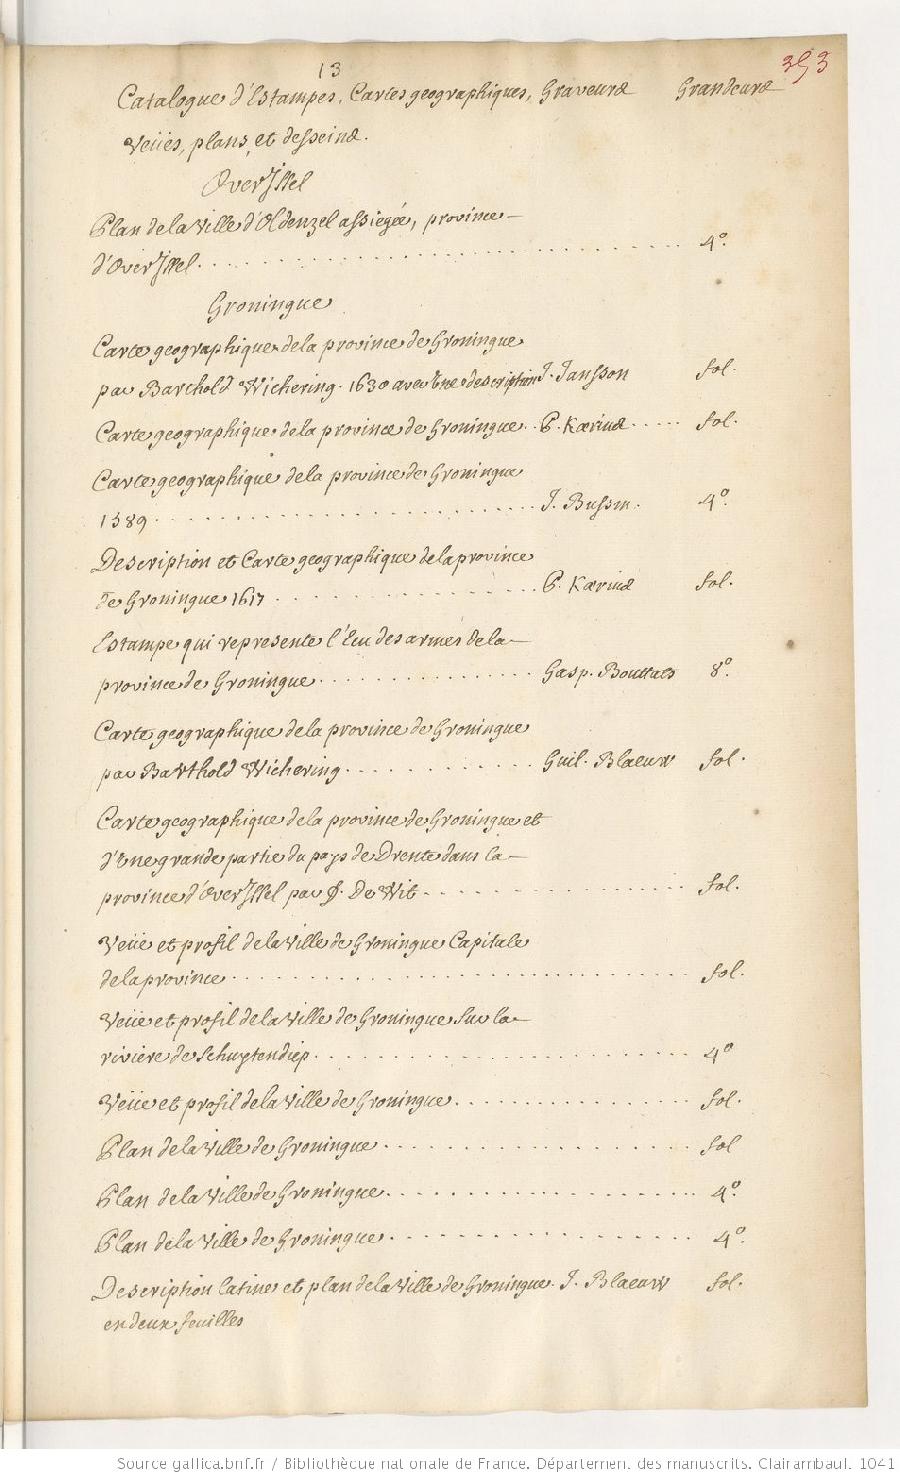 13
353
Catalogue d'Estampes, Cartes geographiques, Graveurs Grandeurs
Veües, plans, et desseins.
OverIssel
Plan de la Ville d'Oldenzel assiegée, province
d'OverIssel. 4º.
Groningue
Carte geographique de la province de Groningue
par Barthold Wichering. 1630 avec Une description J. Jansson fol.
Carte geographique de la province de Groningue. P. Kærius fol.
Carte geographique de la province de Groningue
1589 J. Bussm. 4º
Description et Carte geographique de la province
de Groningue 1617 P. Kærius fol.
Estampe qui represente l'Ecu des armes de la
province de Groningue Gasp. Bouttats 8º.
Carte geographique de la province de Groningue
par Barthold Wichering Guil. Blaeuw fol.
Carte geographique de la province de Groningue et
d'Une grande partie du pays de Drente dans la
province d'OverIssel par F. De Wit fol.
Veüe et profil de la Ville de Groningue Capitale
de la province fol.
Veüe et profil de la Ville de Groningue sur la
riviere de Schuytendiep 4º
Veüe et profil de la Ville de Groningue fol.
Plan de la Ville de Groningue fol
Plan de la Ville de Groningue 4º.
Plan de la Ville de Groningue 4º.
Description latine et plan de la Ville de Groningue. J. Blaeuw fol.
en deux feuilles
Source gallica.bnf.fr / Bibliothèque nationale de France. Département des manuscrits. Clairambault 1041